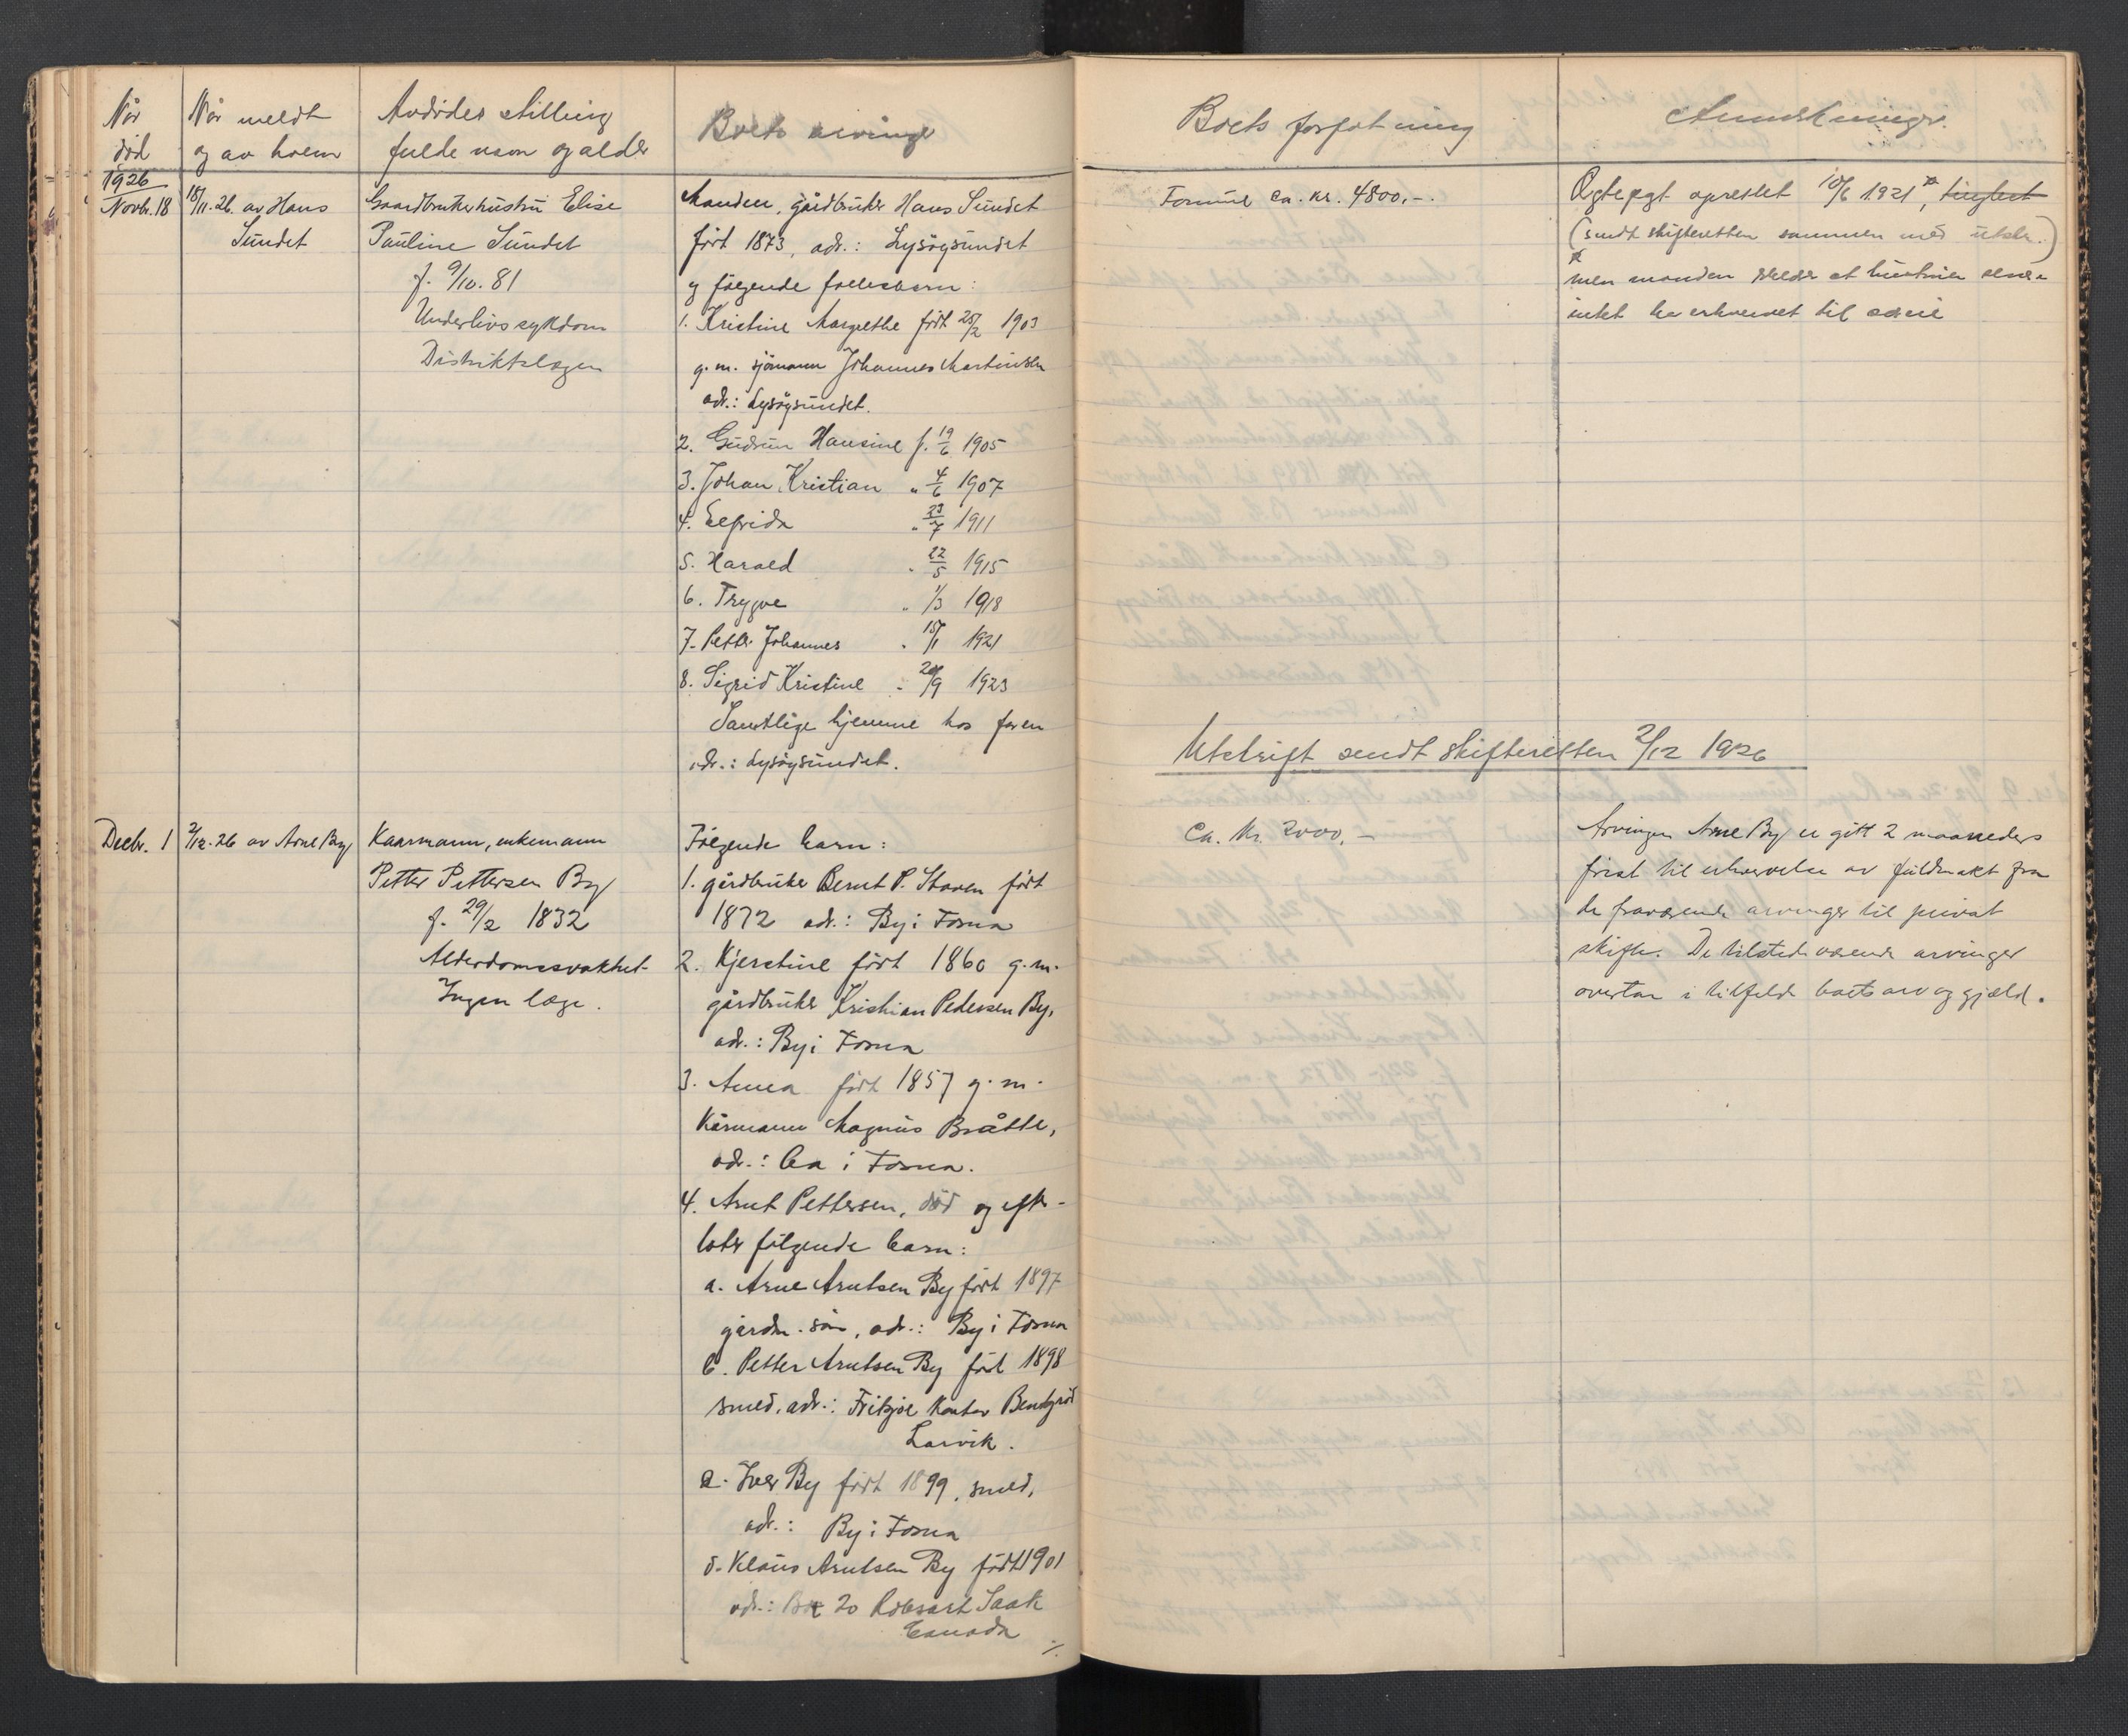 Når død
Når meldt og av hvem
Avdødes stilling fulde navn og alder
Boets arvinger
Boets forfatning
Anmerkninger
1926
Novb. 18
18/11.26. av Hans
Sundet
Gaardbrukerhustru Elise
Pauline Sundet
f. 9/10. 81
Underlivssykdom
Distriktslægen
Manden, gårdbruker Hans Sundet
født 1873, adr.: Lysøysundet
og følgende fællesbarn:
1. Kristine Margrethe født 25/2 1903
g.m. sjømann Johannes Martinsen
adr.: Lysøysundet.
2. Gudrun Hansine f. 19/6 1905
3. Johan Kristian " 4/6 1907
4. Elfrida " 23/7 1911
5. Harald " 22/5 1915
6. Trygve " 1/3 1918
7. Petter Johannes " 15/1 1921
8. Sigrid Kristine " /9 1923
Samtlige hjemme hos faren
adr.: Lysøysundet.
Formue ca. kr. 4800,-.
Ægtepagt oprettet 10/6 1921*, tinglest
(sendt skifteretten sammen med utskr.)
* men manden at hustruen
intet har erhvervet til særeie
Utskrift sendt skifteretten 2/12 1926
Decbr. 1
2/12.26 av Arne By
Kaarmann, enkemann
Petter Pettersen By
f. 29/2 1832
Alderdomssvakhet.
Ingen læge.
Følgende barn:
1. gårdbruker Bernt P. Staven født
1872 adr.: By i Fosna
2. Kjerstine født 1860 g.m.
gårdbruker Kristian Pedersen By,
adr.: By i Fosna
3. Anna født 1857 g.m.
Kårmann Magnus Bråtte,
adr.: i Fosna.
4. Arnt Pettersen, død og efter-
later følgende barn:
a. Arne Arntsen By født 1897
gårdm. søn, adr.: By i Fosna
b. Petter Arntsen By født 1898
smed, adr.:
Larvik.
c. Iver By født 1899, smed,
adr.: By i Fosna
d. Klaus Arntsen By født 1901
adr.: Box 20 Robsart Sask
Canada
./.
Ca. Kr. 2000.-
Arvingen Arne By er gitt 2 maaneders
frist til erhvervelse av fuldmakt fra
de fraværende arvinger til privat
skifte. De tilstedeværende arvinger
overtar i tilfelde boets arv og gjæld.